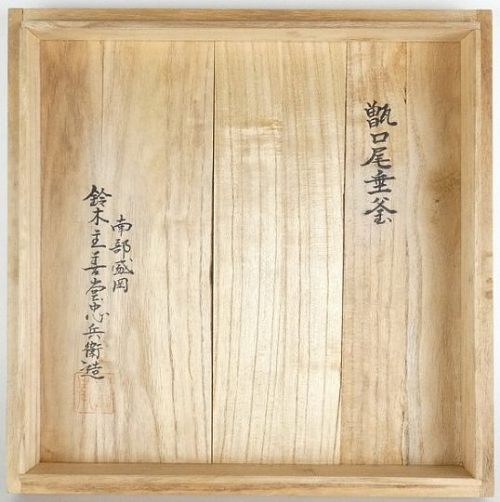 甑口尾垂釜
南部盛岡
鈴木主善堂忠兵衛造